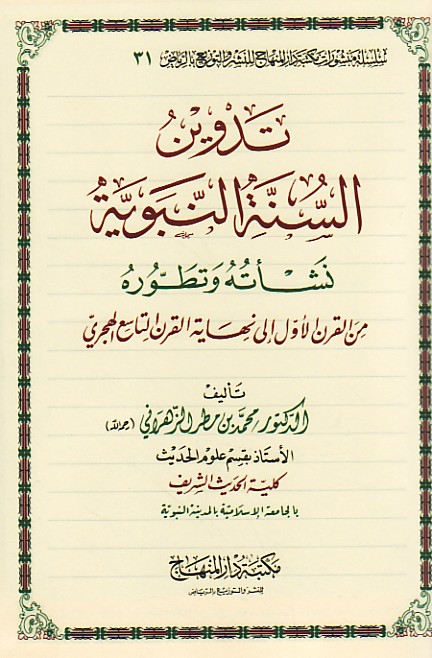 سلسلة منشورات مكتبة دار المنهاج للنشر والتوزيع بالرياض ٣١
تَدْوِينُ
السُّنَّةِ النَّبَوِيَّةِ
نَشْأَتُهُ وَتَطَوُّرُهُ
مِنَ القرن الأوّل إلى نهاية القرن التاسع الهجريّ
تأليف
الدكتور محمد بن مطر الزهراني (رحمه الله)
الأستاذ بقسم علوم الحديث
كلية الحديث الشريف
بالجامعة الإسلامية بالمدينة النبوية
مكتبة دار المنهاج
للنشر والتوزيع بالرياض